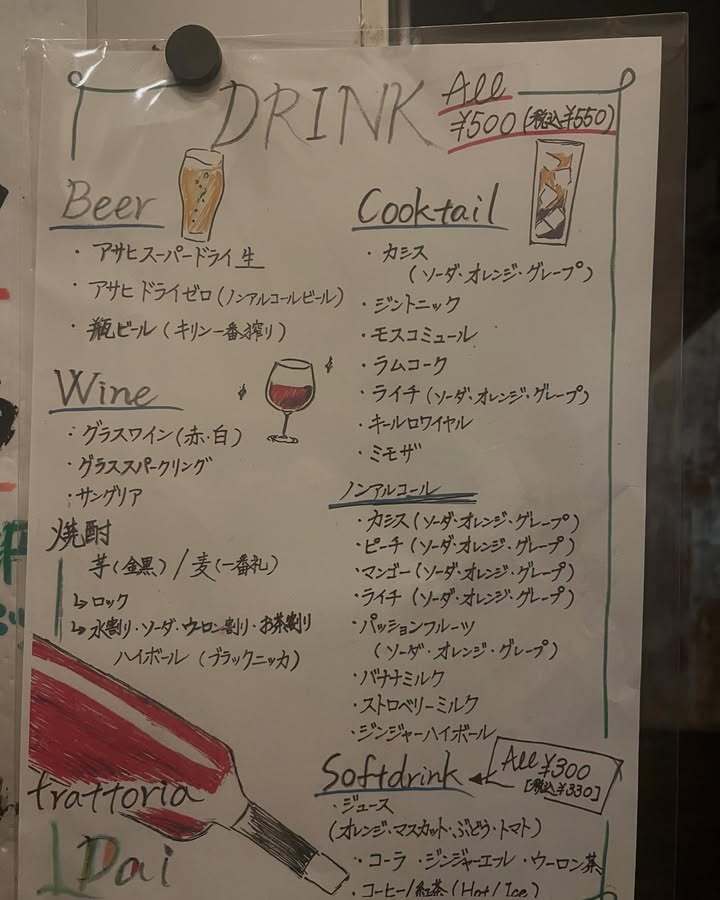 DRINK
All
¥500(税込¥550)
Beer
・アサヒスーパードライ生
・アサヒドライゼロ(ノンアルコールビール)
・瓶ビール(キリン一番搾り)
Wine
・グラスワイン(赤・白)
・グラススパークリング
・サングリア
焼酎
芋(金黒)/麦(一番札)
↳ロック
↳水割り・ソーダ・ウーロン割り・お茶割り
ハイボール(ブラックニッカ)
Cooktail
・カシス
(ソーダ・オレンジ・グレープ)
・ジントニック
・モスコミュール
・ラムコーク
・ライチ(ソーダ・オレンジ・グレープ)
・キールロワイヤル
・ミモザ
ノンアルコール
・カシス(ソーダ・オレンジ・グレープ)
・ピーチ(ソーダ・オレンジ・グレープ)
・マンゴー(ソーダ・オレンジ・グレープ)
・ライチ(ソーダ・オレンジ・グレープ)
・パッションフルーツ
(ソーダ・オレンジ・グレープ)
・バナナミルク
・ストロベリーミルク
・ジンジャーハイボール
Softdrink
All ¥300
[税込¥330]
・ジュース
(オレンジ・マスカット・ぶどう・トマト)
・コーラ・ジンジャーエール・ウーロン茶
・コーヒー/紅茶(Hot/Ice)
trattoria
Dai